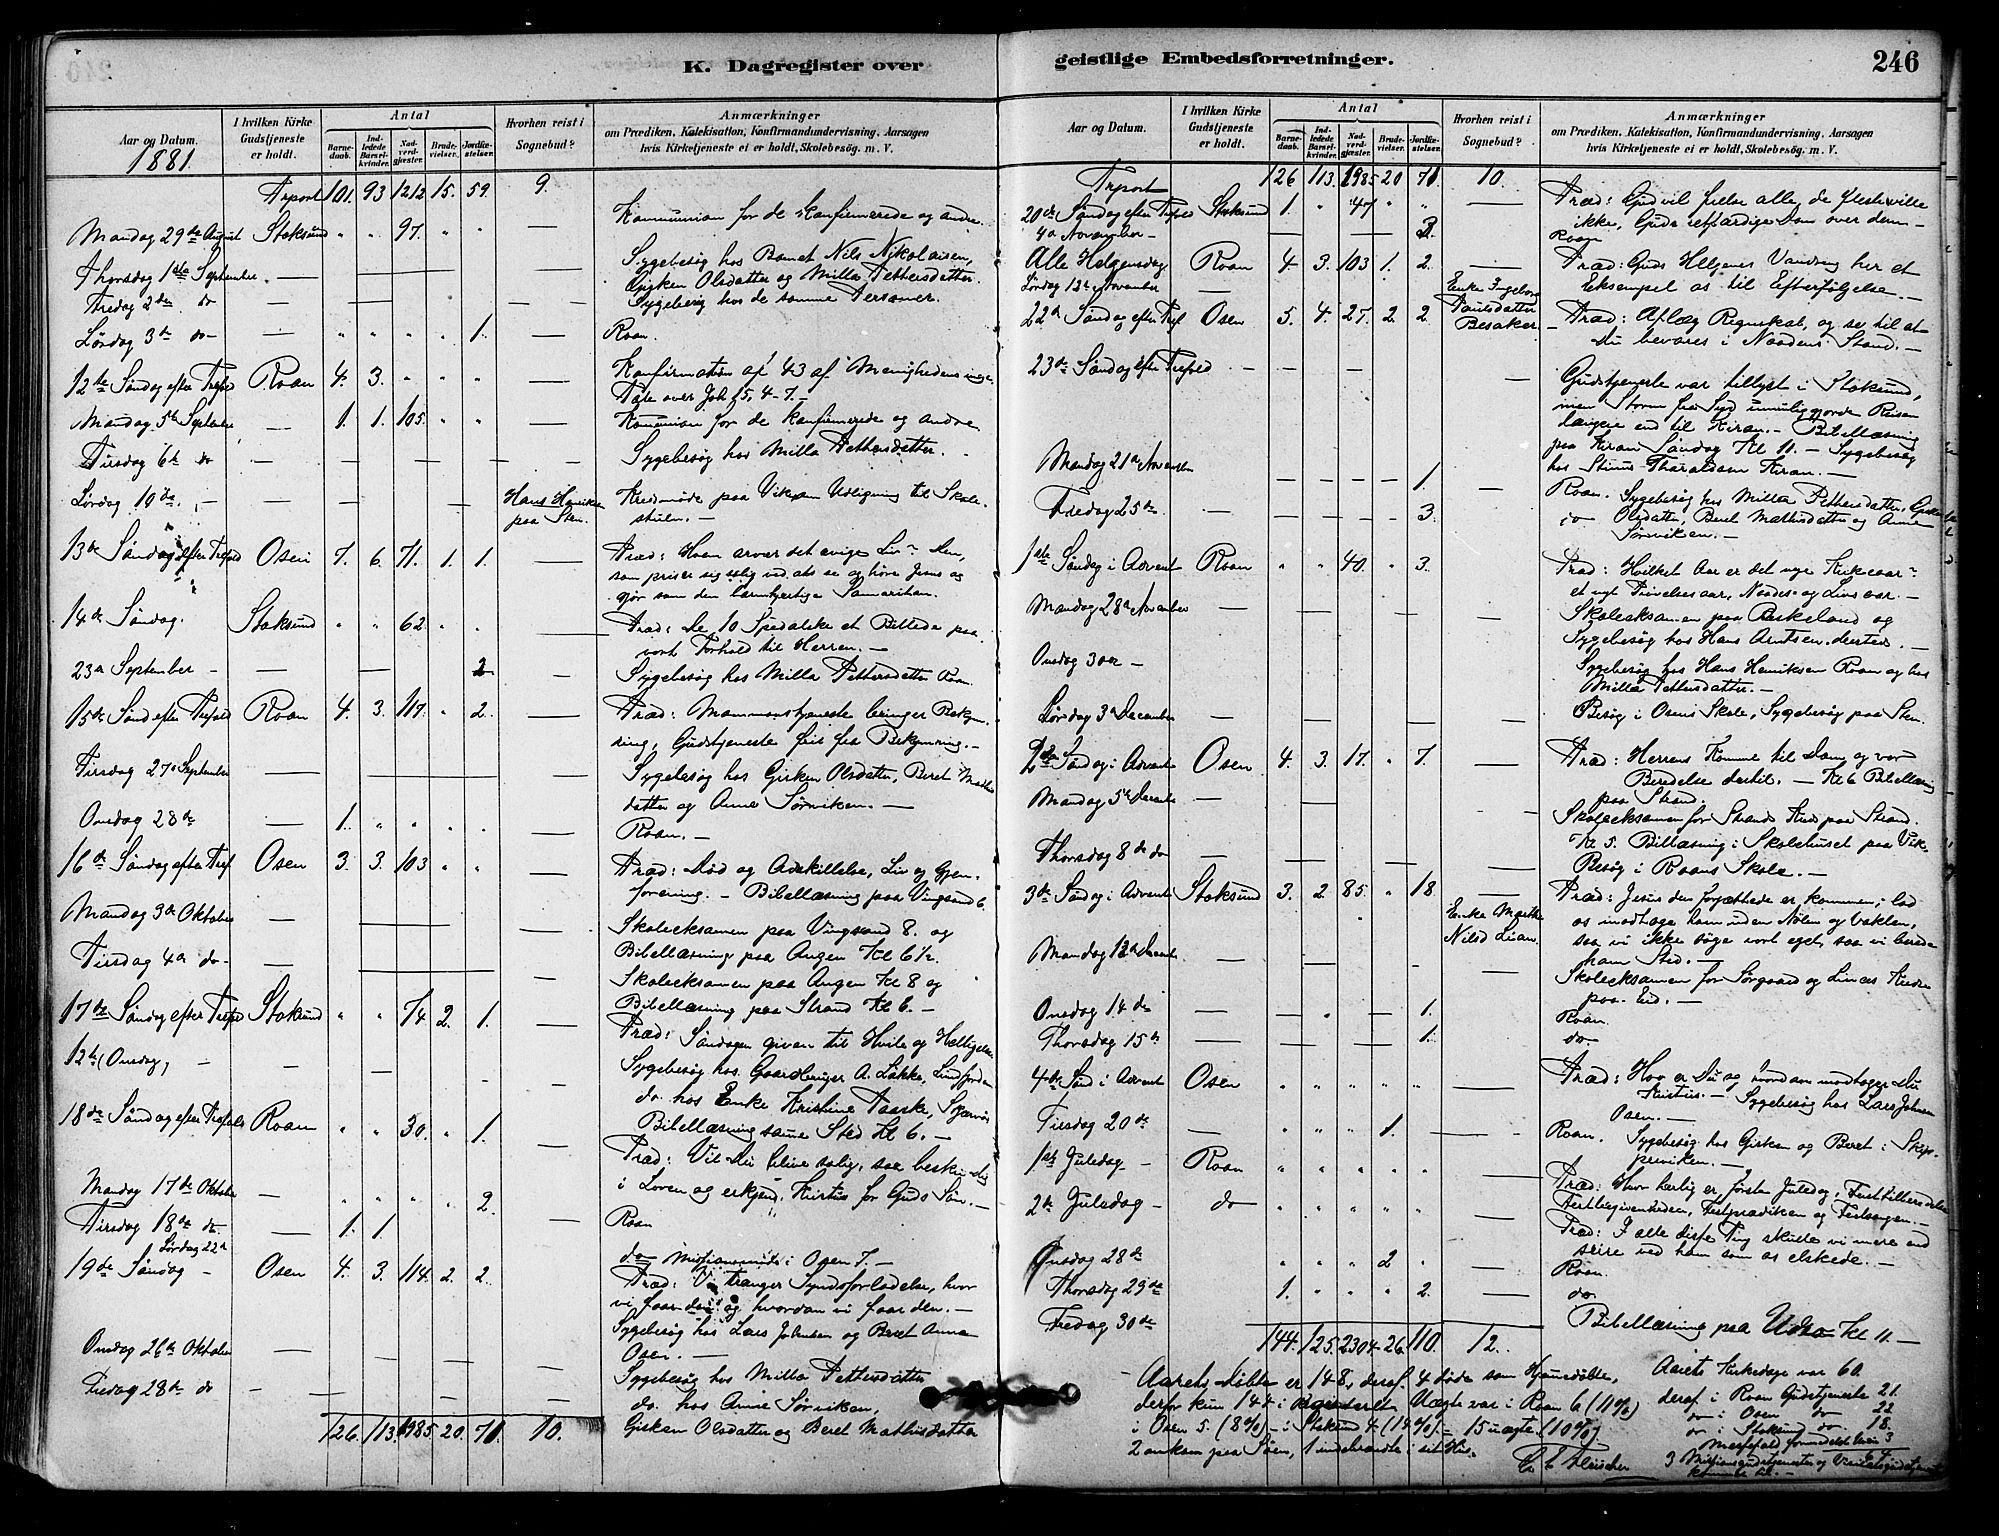 K. Dagregister over
Aar og Datum.
1881.
I hvilken Kirke Gudstjeneste er holdt.
Antal
Barnedaab.
Indledede Barselkvinder.
Nadvergjæster.
Brudevielser.
Jordfæstelser.
Hvorhen reist i Sognebud?
Anmærkninger
om Prædiken, Katekisation, Konfirmandundervisning, Aarsagen
hvis Kirketjeneste ei er holdt, Skolebesøg. m. V.
Trport 101. 93 1212 15. 59. 9.
Mandag 29de August Stoksund " " 97. " " — Kommunion for de konfirmerede og andre.
Thorsdag 1ste September. — Sygebesøg hos Barnet Nils Nikolaisen,
Girken Olsdatter og Milla Pettersdatter.
Fredag 2de do — Sygebesøg hos de samme Personer.
Lørdag 3de do — " " " " 1. — Roan.
12te Søndag efter Trefold Roan 4. 3. " " " Konfirmation af 43 af Menighedens unge.
Tale over Joh 15, 4-7. —
Mandag 5te September — 1. 1. 105. " " — Komunion for de konfirmerede og andre
Tirsdag 6te do — Sygebesøg hos Milla Pettersdatter.
Lørdag 10de — Hans Henriksen paa Sten. Kredsmøde paa Vik om Udligning til Skole
stuen. —
13de Søndag efter Trefold Osen 7. 6. 71. 1. 1. — Præd: Hvem arver det evige Liv? Den,
som priser sig salig ved at se og høre Jesus og
gjør som den barmhjertige Samaritan.
14de Søndag. Stoksund " " 62. " " — Præd: De 10 Spedalske et Billede paa
vort Forhold til Herren. —
23de September — 2 — Sygebesøg hos Milla Pettersdatter Roan.
15de Sønd efter Trefold Roan 4. 3. 117. " 2. — Præd: Mammonstjeneste bringer Bekym-
ring, Gudstjeneste frir fra Bekymring. —
Tirsdag 27de September — Sygebesøg hos Girken Olsdatter, Beret Mathis
datter og Anne Sørviken. —
Onsdag 28de — 1. " " " " — Roan. —
16de Søndag efter Tref Osen 3. 3. 103 " " — Præd: Død og Adskillelse, Liv og Gjen-
forening. — Bibellæsning paa Vingsand 6.
Mandag 3de Oktober — Skoleeksamen paa Vingsand 8. og
Bibellæsning paa Angen Kl 6½.
Tirsdag 4de do — Skoleeksamen paa Angen Kl 8 og
Bibellæsning paa Strand Kl 6. —
17de Søndag efter Trefol Stoksund " " 74 2. 1. — Præd: Søndagen given til Hvile og Helligelse
12te (Onsdag, — Sygebesøg hos Gaardbruger A. Løkke,
do. hos Enke Kristine
Bibellæsning samme Sted Kl 6. —
18de Søndag efter Trefold Roan " " 30. " 1. — Præd: Vil Du blive salig, saa beskin dig
i Loven og erkjend, Kristus for Guds Søn. —
Mandag 17de Oktober — " " " " 2. — Roan
Tirsdag 18de do — 1. 1 — do
Lørdag 22de Missionsmøde i Osen 7. —
19de Søndag — Osen 4. 3. 114. 2. 2. — Præd: Vi trænger Syndsforladelse, hvor
vi faar den og hvordan vi faar den. —
Onsdag 26de Oktober — Sygebesøg hos Lars Johnsen og Beret Anna
Osen. —
Fredag 28de do — Sygebesøg hos Milla Pettersdatter
do. hos Anne Sørviken,
126. 113. 1985. 20. 71. 10. Girken Olsdatter og Beret Mathisdatter
geistlige Embedsforretninger.
246
Aar og Datum.
I hvilken Kirke Gudstjeneste er holdt.
Antal
Barnedaab.
Indledede Barselkvinder.
Nadvergjæster.
Brudevielser.
Jordfæstelser.
Hvorhen reist i Sognebud?
Anmærkninger
om Prædiken, Katekisation, Konfirmandundervisning, Aarsagen
hvis Kirketjeneste ei er holdt, Skolebesøg. m. V.
Trport 126 113. 1985 20 71. 10.
20de Søndag efter Trefold Stoksund 1. " 47 " " — Præd: Gud vil frelse alle de fleste ville
ikke, Guds retfærdige Dom over dem —
4de November — 3. Roan
Alle Helgensdag Roan 4. 3. 103. 1. 2. — Præd: Guds Helgenes Vandring her et
Eksempel os til Efterfølgelse. —
Lørdag 12te November — Enke Ingeborg Paulsdatter Besaker.
22de Søndag efter Tref. Osen 5. 4. 27. 2. 2. — Præd: Aflæg Regnskab, og se til at
Du bevares i Naadens Stand. —
23de Søndag efter Trefold — Gudstjeneste var tillyst i Stoksund,
men Storm fra Syd umuliggjorde Reisen
længere end til Kiran. — Bibellæsning
paa Kiran Søndag Kl 11. — Sygebesøg
hos Thoraldsen Kiran. —
Mandag 21de November — 1. — Roan. Sygebesøg hos Milla Pettersdatter, Girken
Fredag 25de — 3. — do Olsdatter, Beret Mathisdatter og Anne
Sørviken. —
1ste Søndag i Advent Roan " " 40. " 3. — Præd: Hvilket Aar er det nye Kirkeaar?
et nyt Prøvelsesaar, Naades og Livs aar. —
Mandag 28de November — Skoleeksamen paa Beskeland og
Sygebesøg hos Hans Arntsen dersted. —
Onsdag 30te — Sygebesøg hos Hans Henriksen Roan og hos
Milla Pettersdatter. —
Lørdag 3de December — Besøg i Osens Skole, Sygebesøg paa Sten.
2de Søndag i Advent Osen 4. 3. 17. " 7. — Præd: Herrens Komme til Dom og vor
Beredelse dertil. — Kl 6 Bibellæsning
paa Strand.
Mandag 5te Decembr — Skoleeksamen for Strands Kreds paa Strand.
Kl 5. Bibellæsning i Skolehuset paa Vik.
Thorsdag 8de do — Besøg i Roans Skole. —
3de Søndag i Advent Stoksund 3. 2. 85. " 18. — Præd: Jesus den forjættede er kommen; lad
Enke Marthe Nilsd Lian. os modtage ham uden Nølen og Vaklen,
saa vi ikke søge vort eget, saa vi berede
ham Sted. —
Mandag 12te Decembr — Skoleeksamen for Sørgaard og Kreds
paa Eid. —
Onsdag 14de — 1. Roan.
Thorsdag 15de — 1. do
4de Sønd i Advent Osen " " " " " — Præd: Hvo er Du og hvordan modtager Du
Kristus. — Sygebesøg hos Lars Johnsen
Osen. —
Tirsdag 20de " " " 1. " — Roan. Sygebesøg hos Girken og Beret i Skjer-
vikken. —
1ste Juledag — Roan " " " " " — Præd: Hvor herlig er første Juledag,
Festbegivenheden, Festprædiken og Festsangen. —
2de Julsdag — do " " " " " — Præd: I alle disse Ting skulle vi mere end
seire ved ham som os elskede. —
Onsdag 28de " " " 2 " — Roan.
Thorsdag 29de 1. " " " 2. — do
Fredag 30de Bibellæsning paa Kl 11. —
144. 125. 2304. 26. 110. 12.
Aarets Døbte er 148, deraf 4 døde som Hjemmedøbte,
derfor kun 144 i Registeret. Uægte var i Roan 6 (11%)
i Osen 5. (8%) — i Stoksund 4. (14%). — 15 uægte (10%)
2 omkom paa Søen, 1 indebrændte i sit Hus.
Aarets Kirkedage var 60.
deraf i Roan Gudstjeneste 21.
do i Osen do 22
do i Stoksund do 18.
3 Missionsgudstjenester og Visitatsgudstjeneste
komme til. —